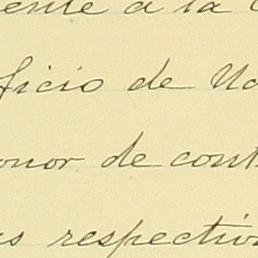 ente a la
ficio de No
onor de cont
as respectiv